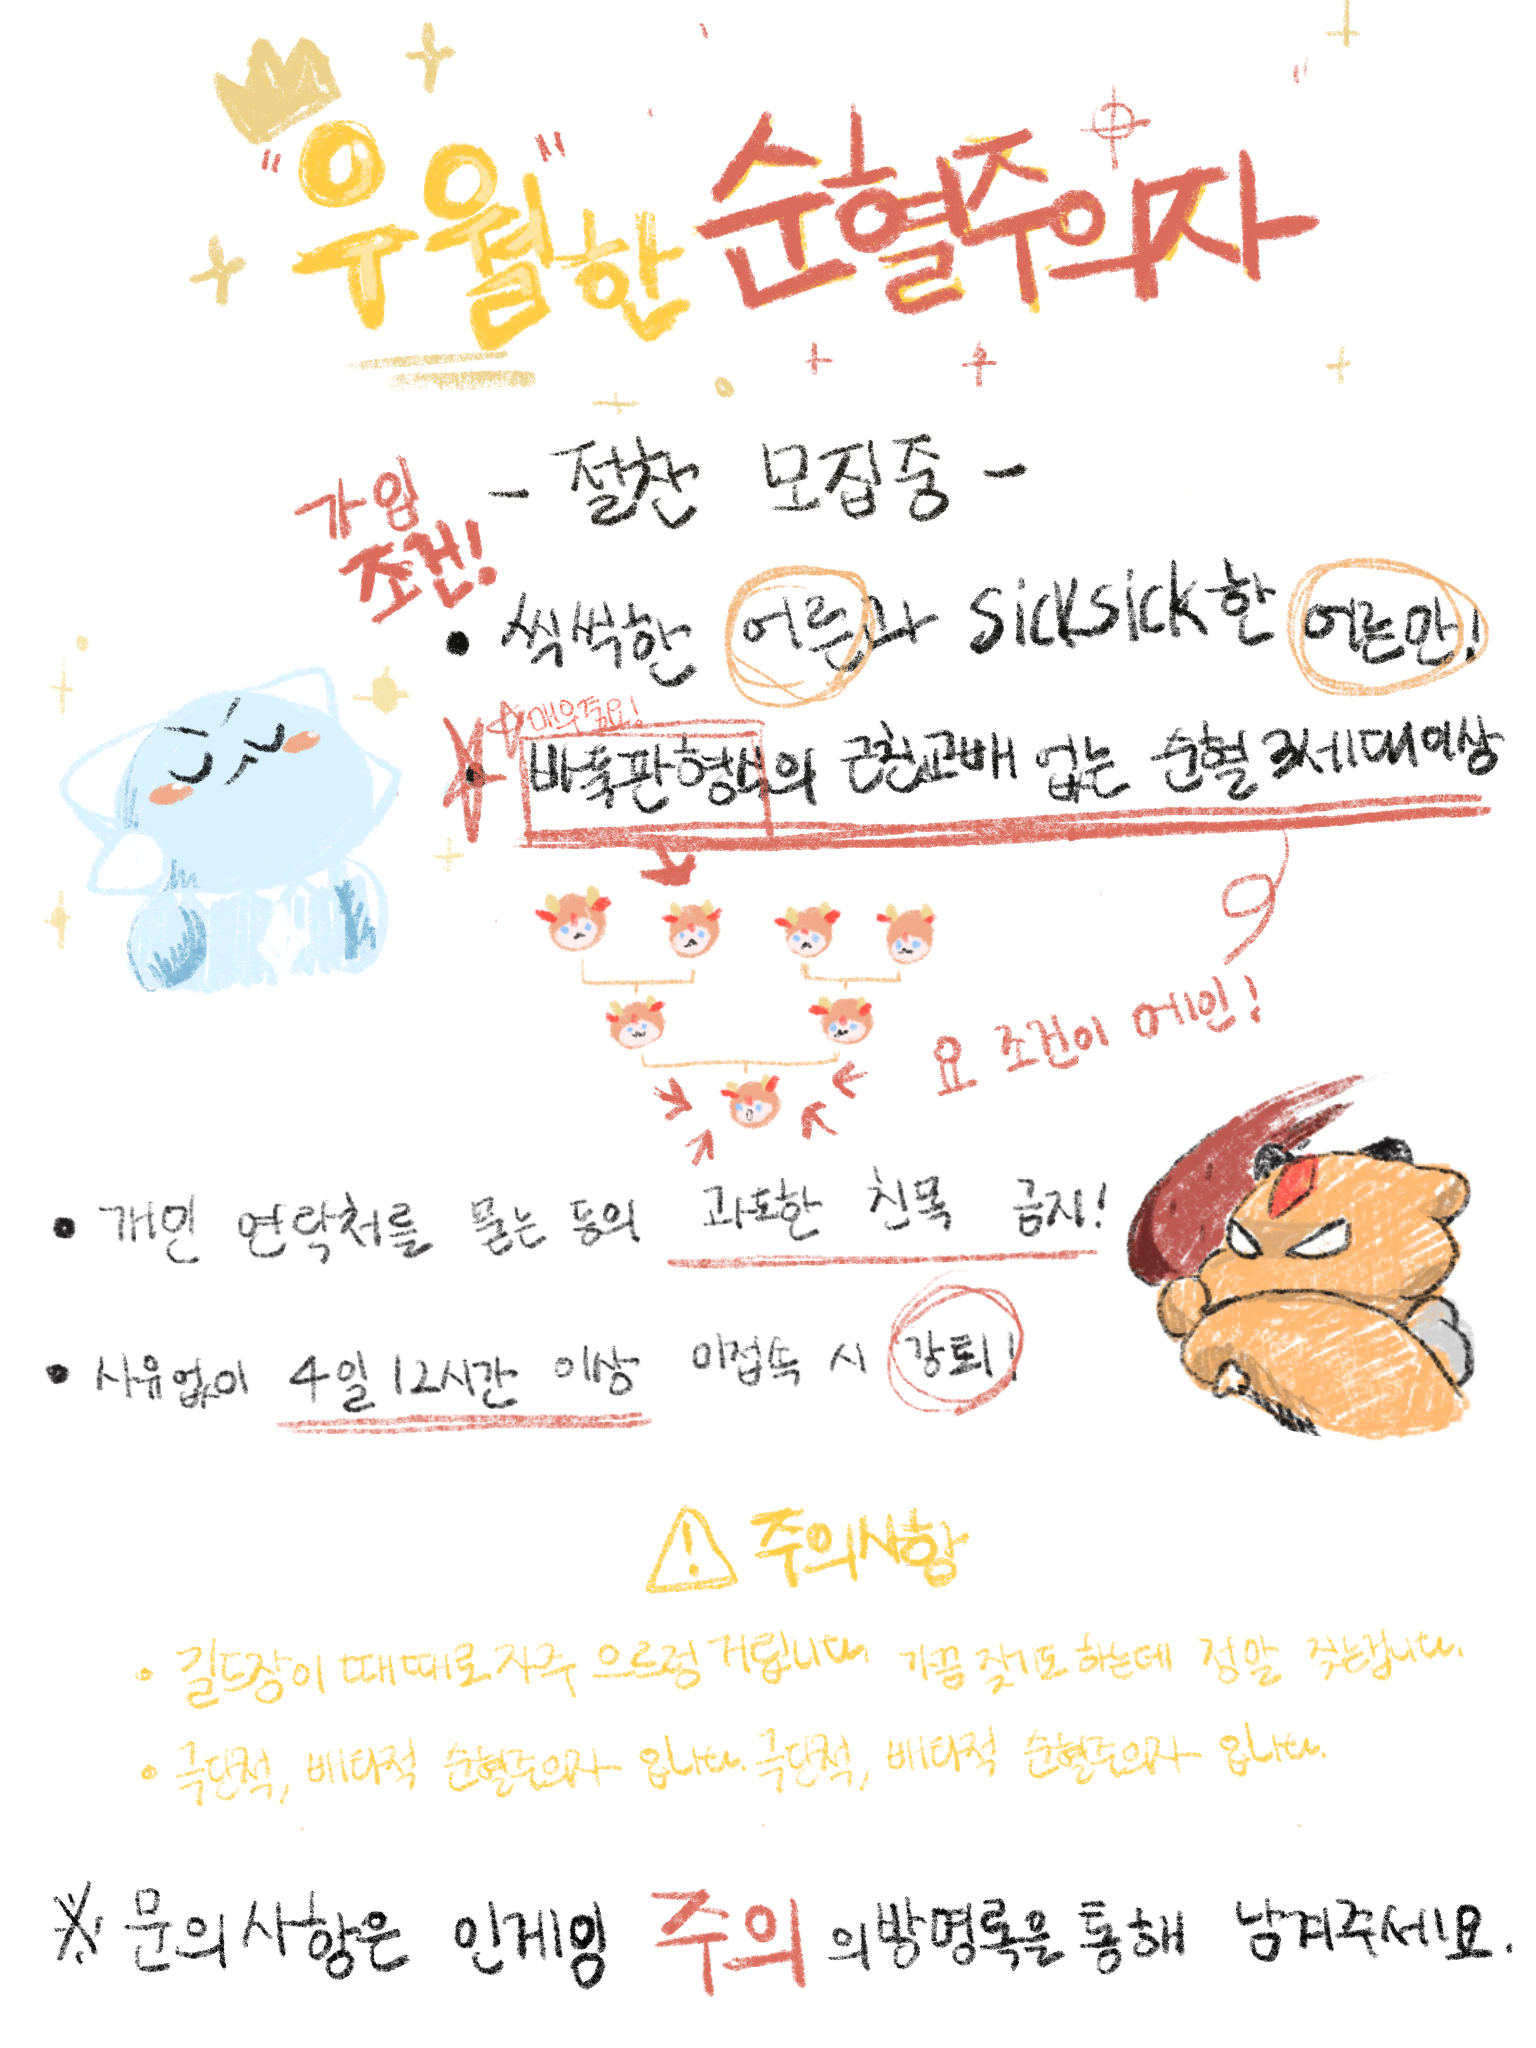 "우월"한 순혈주의자
- 절찬 모집중 -
가입
조건!
• 씩씩한 어른과 sicksick한 어른만!
☆매우중요!
• 바푹판형소의 근친교배 없는 순혈 3세대이상
요 조건이 메인!
• 개인 연락처를 묻는 등의 과도한 친목 금지!
• 사유없이 4일 12시간 이상 미접속 시 강퇴!
⚠ 주의사항
• 길드장이 때때로 자주 으르렁 거립니다 가끔 짖기도 하는데 정말 짖는겁니다.
• 극단적, 배타적 순혈주의자 입니다. 극단적, 배타적 순혈주의자 입니다.
※ 문의사항은 인게임 주의 의 방명록을 통해 남겨주세요.